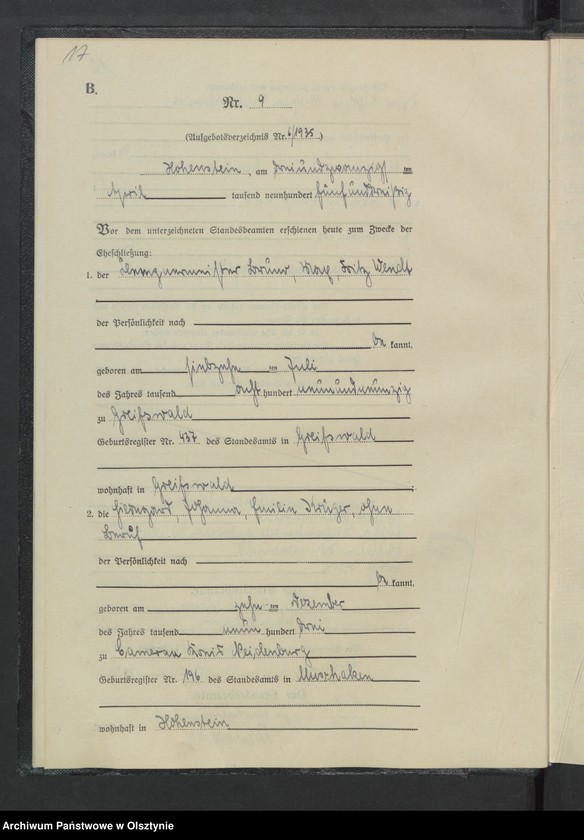 17
B.
Nr. 9
(Aufgebotsverzeichnis Nr. 6/1935)
Hohenstein, am dreiundzwanzigsten
April tausend neunhundert fünfunddreißig
Vor dem unterzeichneten Standesbeamten erschienen heute zum Zwecke der
Eheschließung:
1. der Bruno, Max, Fritz Wendt
der Persönlichkeit nach
be kannt,
geboren am siebzehn ten Juli
des Jahres tausend acht hundert neunundneunzig
zu Greifswald
Geburtsregister Nr. 437 des Standesamts in Greifswald
wohnhaft in Greifswald ;
2. die Hildegard, Johanna, Emilie Krüger, ohne
Beruf
der Persönlichkeit nach
be kannt,
geboren am zehn ten Dezember
des Jahres tausend neun hundert drei
zu Camerau Kreis Neidenburg
Geburtsregister Nr. 196 des Standesamts in Muschaken
wohnhaft in Hohenstein
Archiwum Państwowe w Olsztynie